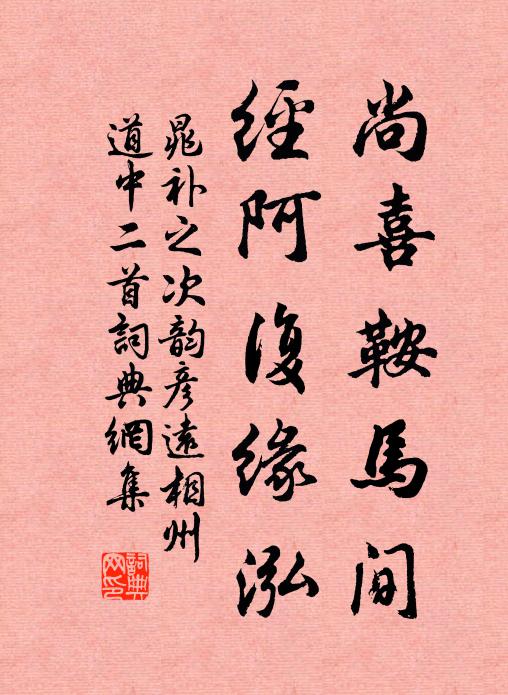 尚喜鞍馬间
經阿復緣泓
晁补之次韵彦遠相州
道中二首詞典網集
詞典
网印